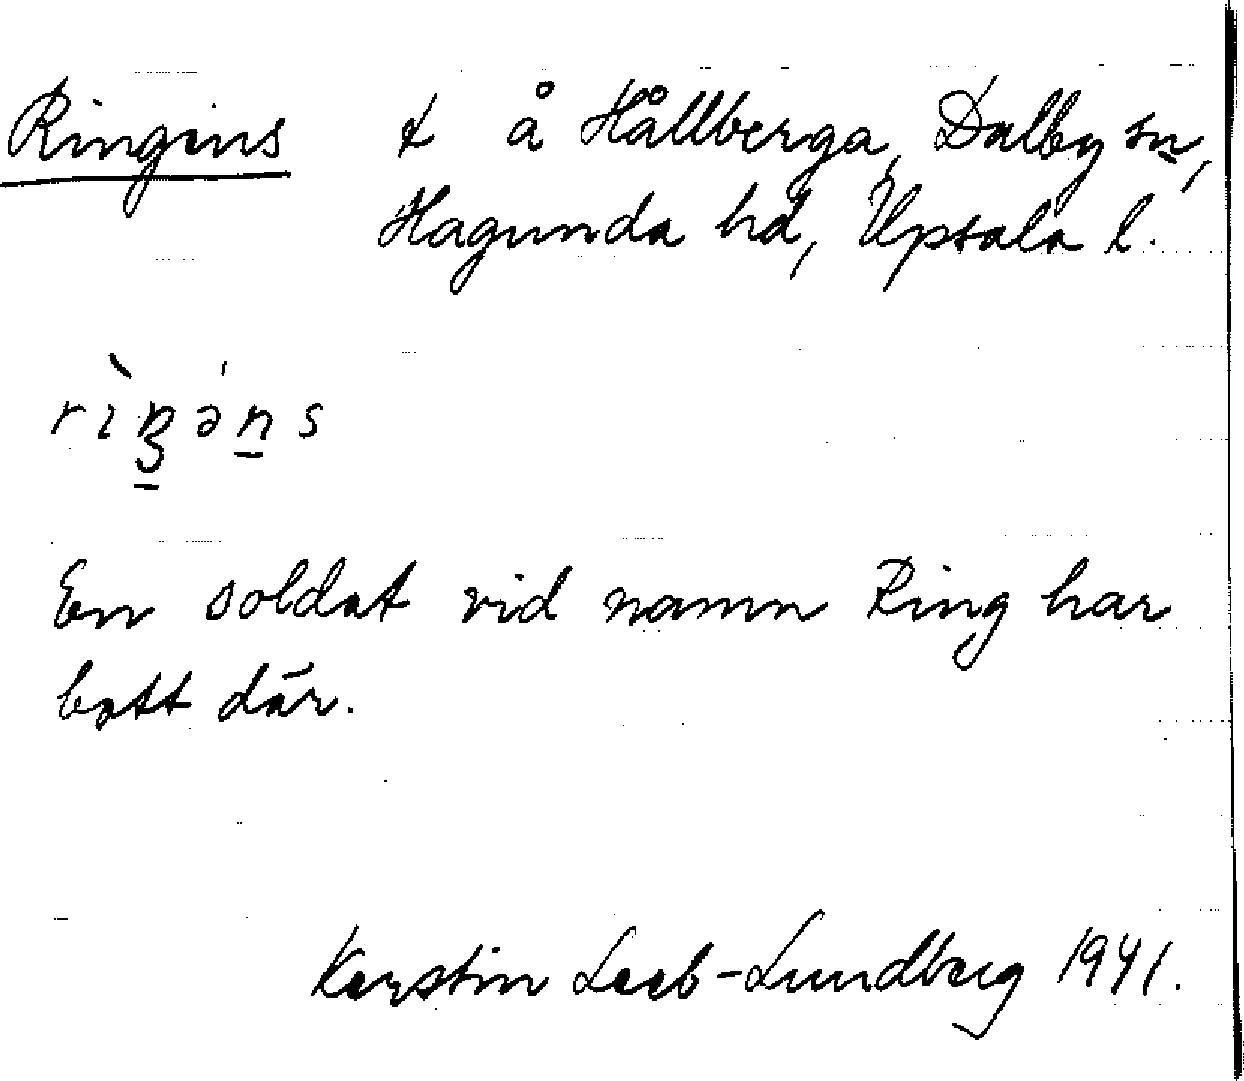 Ringins t å Hållberga, Dalby sn,
Hagunda hd, Upsala l.
rìŋə́ns
En soldat vid namn Ring har
bott där.
Kerstin Leeb-Lundberg 1941.